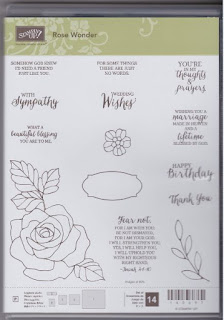 STAMPIN' UP!
Rose Wonder
SOMEHOW GOD KNEW
I'D NEED A FRIEND
JUST LIKE YOU.
FOR SOME THINGS
THERE ARE JUST
NO WORDS.
YOU'RE
IN MY
thoughts
&
prayers.
WITH
Sympathy
WEDDING
Wishes
WISHING YOU A
MARRIAGE
MADE IN HEAVEN
and a
lifetime
BLESSED BY GOD.
WHAT A
beautiful blessing
YOU ARE TO ME.
HAPPY
Birthday
Thank You
Fear not,
FOR I AM WITH YOU;
BE NOT DISMAYED,
FOR I AM YOUR GOD.
I WILL STRENGTHEN YOU,
YES, I WILL HELP YOU,
I WILL UPHOLD YOU
WITH MY RIGHTEOUS
RIGHT HAND.
Isaiah 41:10
14